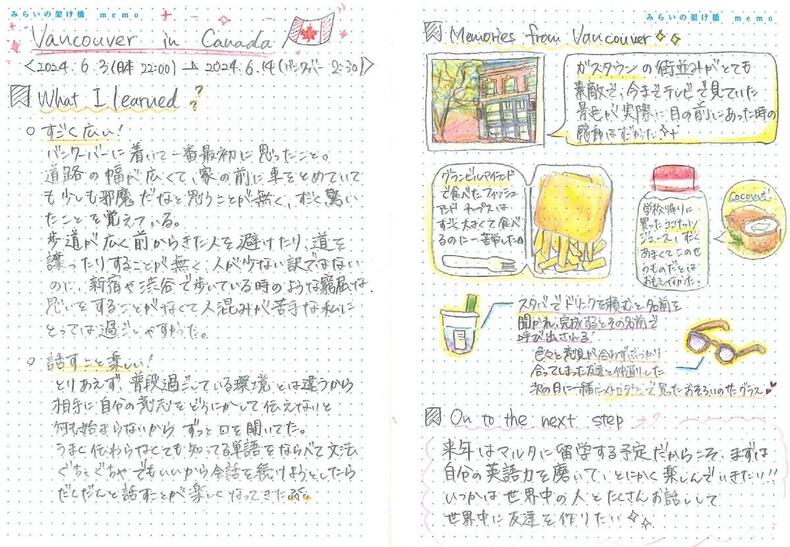 みらいの架け橋 memo
Vancouver in Canada
<2024.6.3(日本 22:00) → 2024.6.14(バンクーバー 2:30)>
What I learned?
すごく広い!
バンクーバーに着いて一番最初に思ったこと。
道路の幅が広くて、家の前に車をとめていて
も少しも邪魔だなと思うことが無く、すごく驚い
たことを覚えている。
歩道が広く前からきた人を避けたり、道を
譲ったりすることが無く、人が少ない訳ではない
のに、新宿や渋谷で歩いている時のような窮屈な
思いをすることがなくて人混みが苦手な私に
とっては過ごしやすかった。
話すこと楽しい!
とりあえず、普段過ごしている環境とは違うから
相手に自分の意志をどうにかして伝えないと
何も始まらないから ずっと口を開いてた。
うまく伝わらなくても知ってる単語をならべて文法
ぐちゃぐちゃでもいいから会話を続けようとしたら
だんだんと話すことが楽しくなってきた
みらいの架け橋 memo
Memories from Vancouver
ガスタウンの街並みがとても
素敵で、今までテレビで見ていた
景色が実際に目の前にあった時の
感動はすごかった
グランビルアイランド
で食べたフィッシュ
アンド チップスは
すごく大きくて食べ
るのに一苦労した
学校帰りに
買ったココナッツ
ジュース!すごく
あまくてこのせ
のものだとは
おもえなかった。
Coconut!
スタバでドリンクを頼むと名前を
聞かれ、完成するとその名前で
呼び出される
色々と意見が合わずぶつかり
合ってしまった友達と仲直りした
次の日に一緒にメトロタウンで買ったおそろいのサングラス
On to the next step
来年はマルタに留学する予定だからこそ、まずは
自分の英語力を磨いて、とにかく楽しんでいきたい!!
いつかは世界中の人とたくさんお話しして
世界中に友達を作りたい